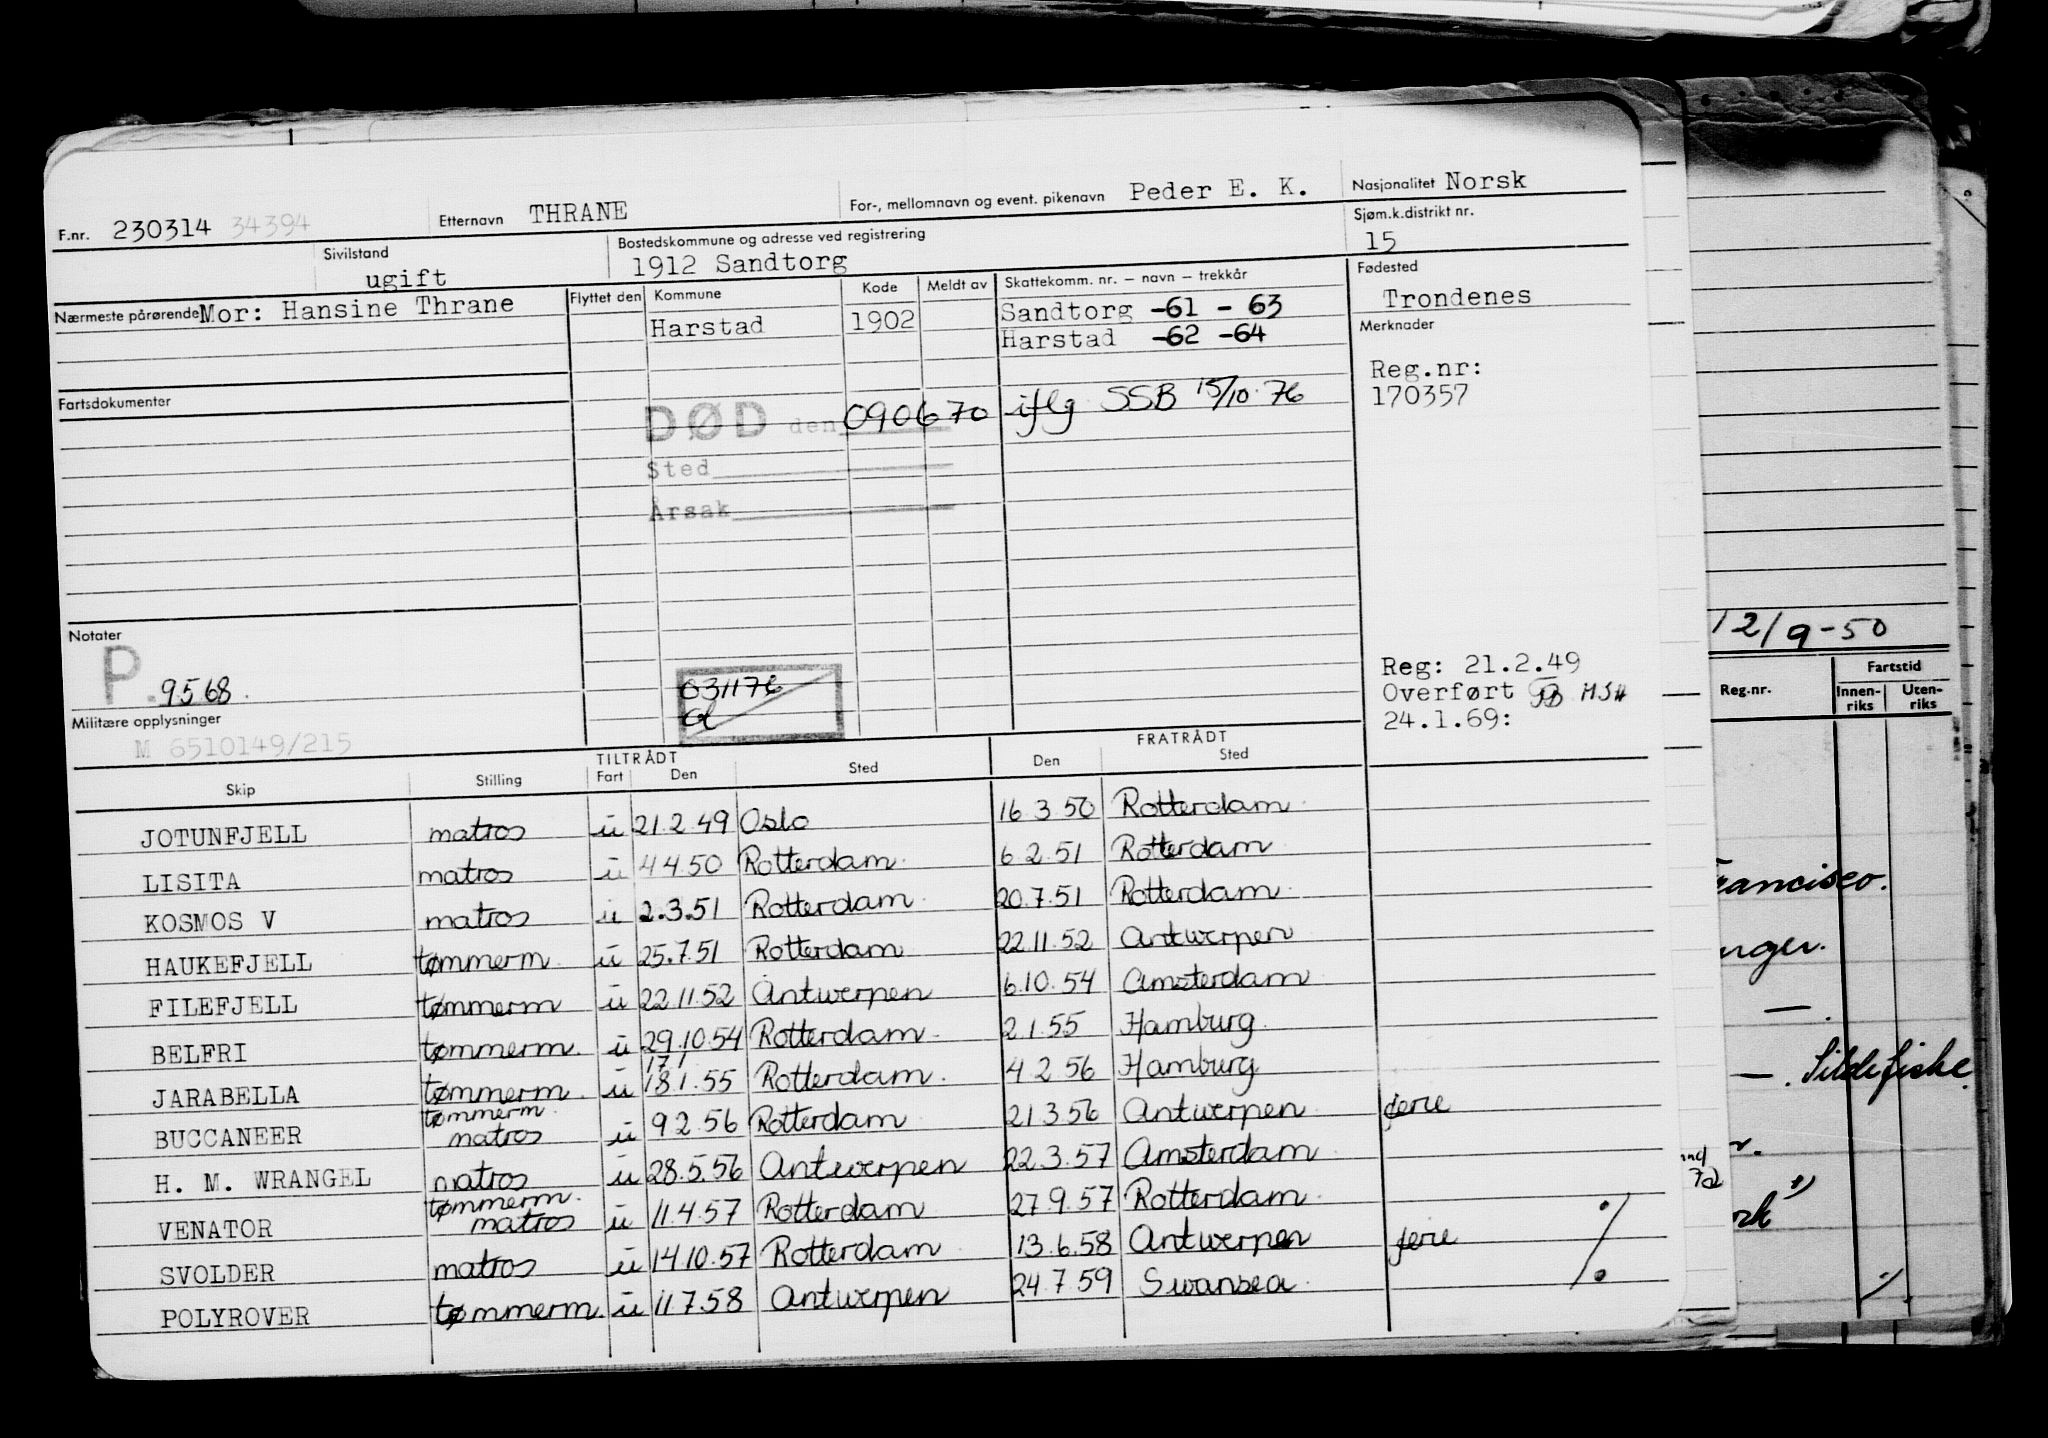 F.nr. 230314 34394 Etternavn THRANE For-, mellomnavn og event. pikenavn Peder E. K. Nasjonalitet Norsk
Sivilstand ugift Bostedskommune og adresse ved registrering 1912 Sandtorg Sjøm.k.distrikt nr. 15
Nærmeste pårørende Mor: Hansine Thrane Flyttet den Kommune Kode Meldt av Skattekomm. nr. – navn – trekkår Fødested Trondenes
Harstad 1902 Sandtorg -61 - 63
Harstad -62 -64
Merknader
Reg.nr:
170357
Fartsdokumenter
DØD den 090670 iflg SSB 15/10 76
Sted
Årsak
Notater
P. 9568.
031176
Reg: 21.2.49
Overført
24.1.69:
Militære opplysninger
M 6510149/215
TILTRÅDT FRATRÅDT
Skip Stilling Fart Den Sted Den Sted
JOTUNFJELL matros u 21.2.49 Oslo 16.3.50 Rotterdam
LISITA matros u 4.4.50 Rotterdam 6.2.51 Rotterdam
KOSMOS V matros u 2.3.51 Rotterdam 20.7.51 Rotterdam
HAUKEFJELL tømmerm. u 25.7.51 Rotterdam 22.11.52 Antwerpen
FILEFJELL tømmerm u 22.11.52 Antwerpen 6.10.54 Amsterdam
BELFRI tømmerm. u 29.10.54 Rotterdam 2.1.55 Hamburg
17/
JARABELLA tømmerm. u 18.1.55 Rotterdam. 4.2.56 Hamburg
BUCCANEER tømmerm. matros u 9.2.56 Rotterdam 21.3.56 Antwerpen ferie
H. M. WRANGEL matros u 28.5.56 Antwerpen 22.3.57 Amsterdam
VENATOR tømmerm. matros u 11.4.57 Rotterdam 27.9.57 Rotterdam
SVOLDER matros u 14.10.57 Rotterdam 13.6.58 Antwerpen ferie
POLYROVER tømmerm. u 11.7.58 Antwerpen 24.7.59 Swansea
./.
12/9-50
Fartstid
Reg.nr. Innen-riks Uten-riks
Sildefiske